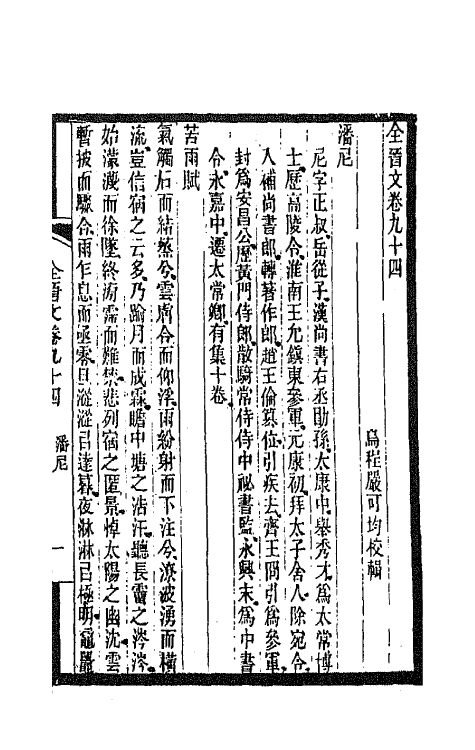 全晉文卷九十四
烏程嚴可均校輯
潘尼
尼字正叔岳從子漢尚書右丞勖孫太康中舉秀才爲太常博
士歷高陵令淮南王允鎮東參軍元康初拜太子舍人除宛令
入補尚書郎轉著作郎趙王倫篡位引疾去齊王冏引爲參軍
封爲安昌公歷黃門侍郎散騎常侍侍中祕書監永興末爲中書
令永嘉中遷太常卿有集十卷
苦雨賦
氣觸石而結蒸兮雲膚合而仰浮雨紛射而下注兮潦波湧而橫
流豈信宿之云多乃踰月而成霖瞻中塘之浩汗聽長霤之涔涔
始濛瀎而徐墜終滂霈而難禁悲列宿之匿景悼太陽之幽沈雲
暫披而驟合雨乍息而亟零旦漎漎已達暮夜淋淋已極明黿鼉
全晉文卷九十四
潘尼
一